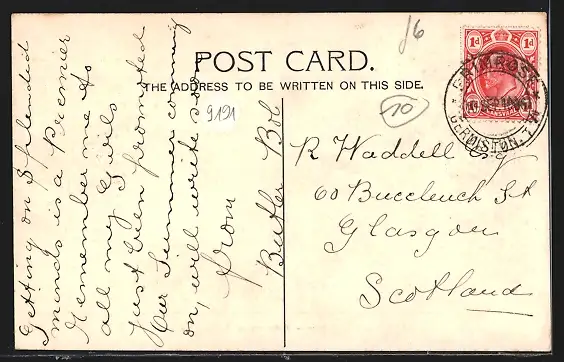 POST CARD.
THE ADDRESS TO BE WRITTEN ON THIS SIDE.
Getting on Splended
minds is a Premier
Remember me to
all my Girls
Just been promoted
Our Summer coming
on, will write soon
from
Butler Bob
R Waddell Esq
60 Buccleuch St
Glasgow
Scotland
9191
J6
70
1d 1d
PRIMROSE
GERMISTON.T.